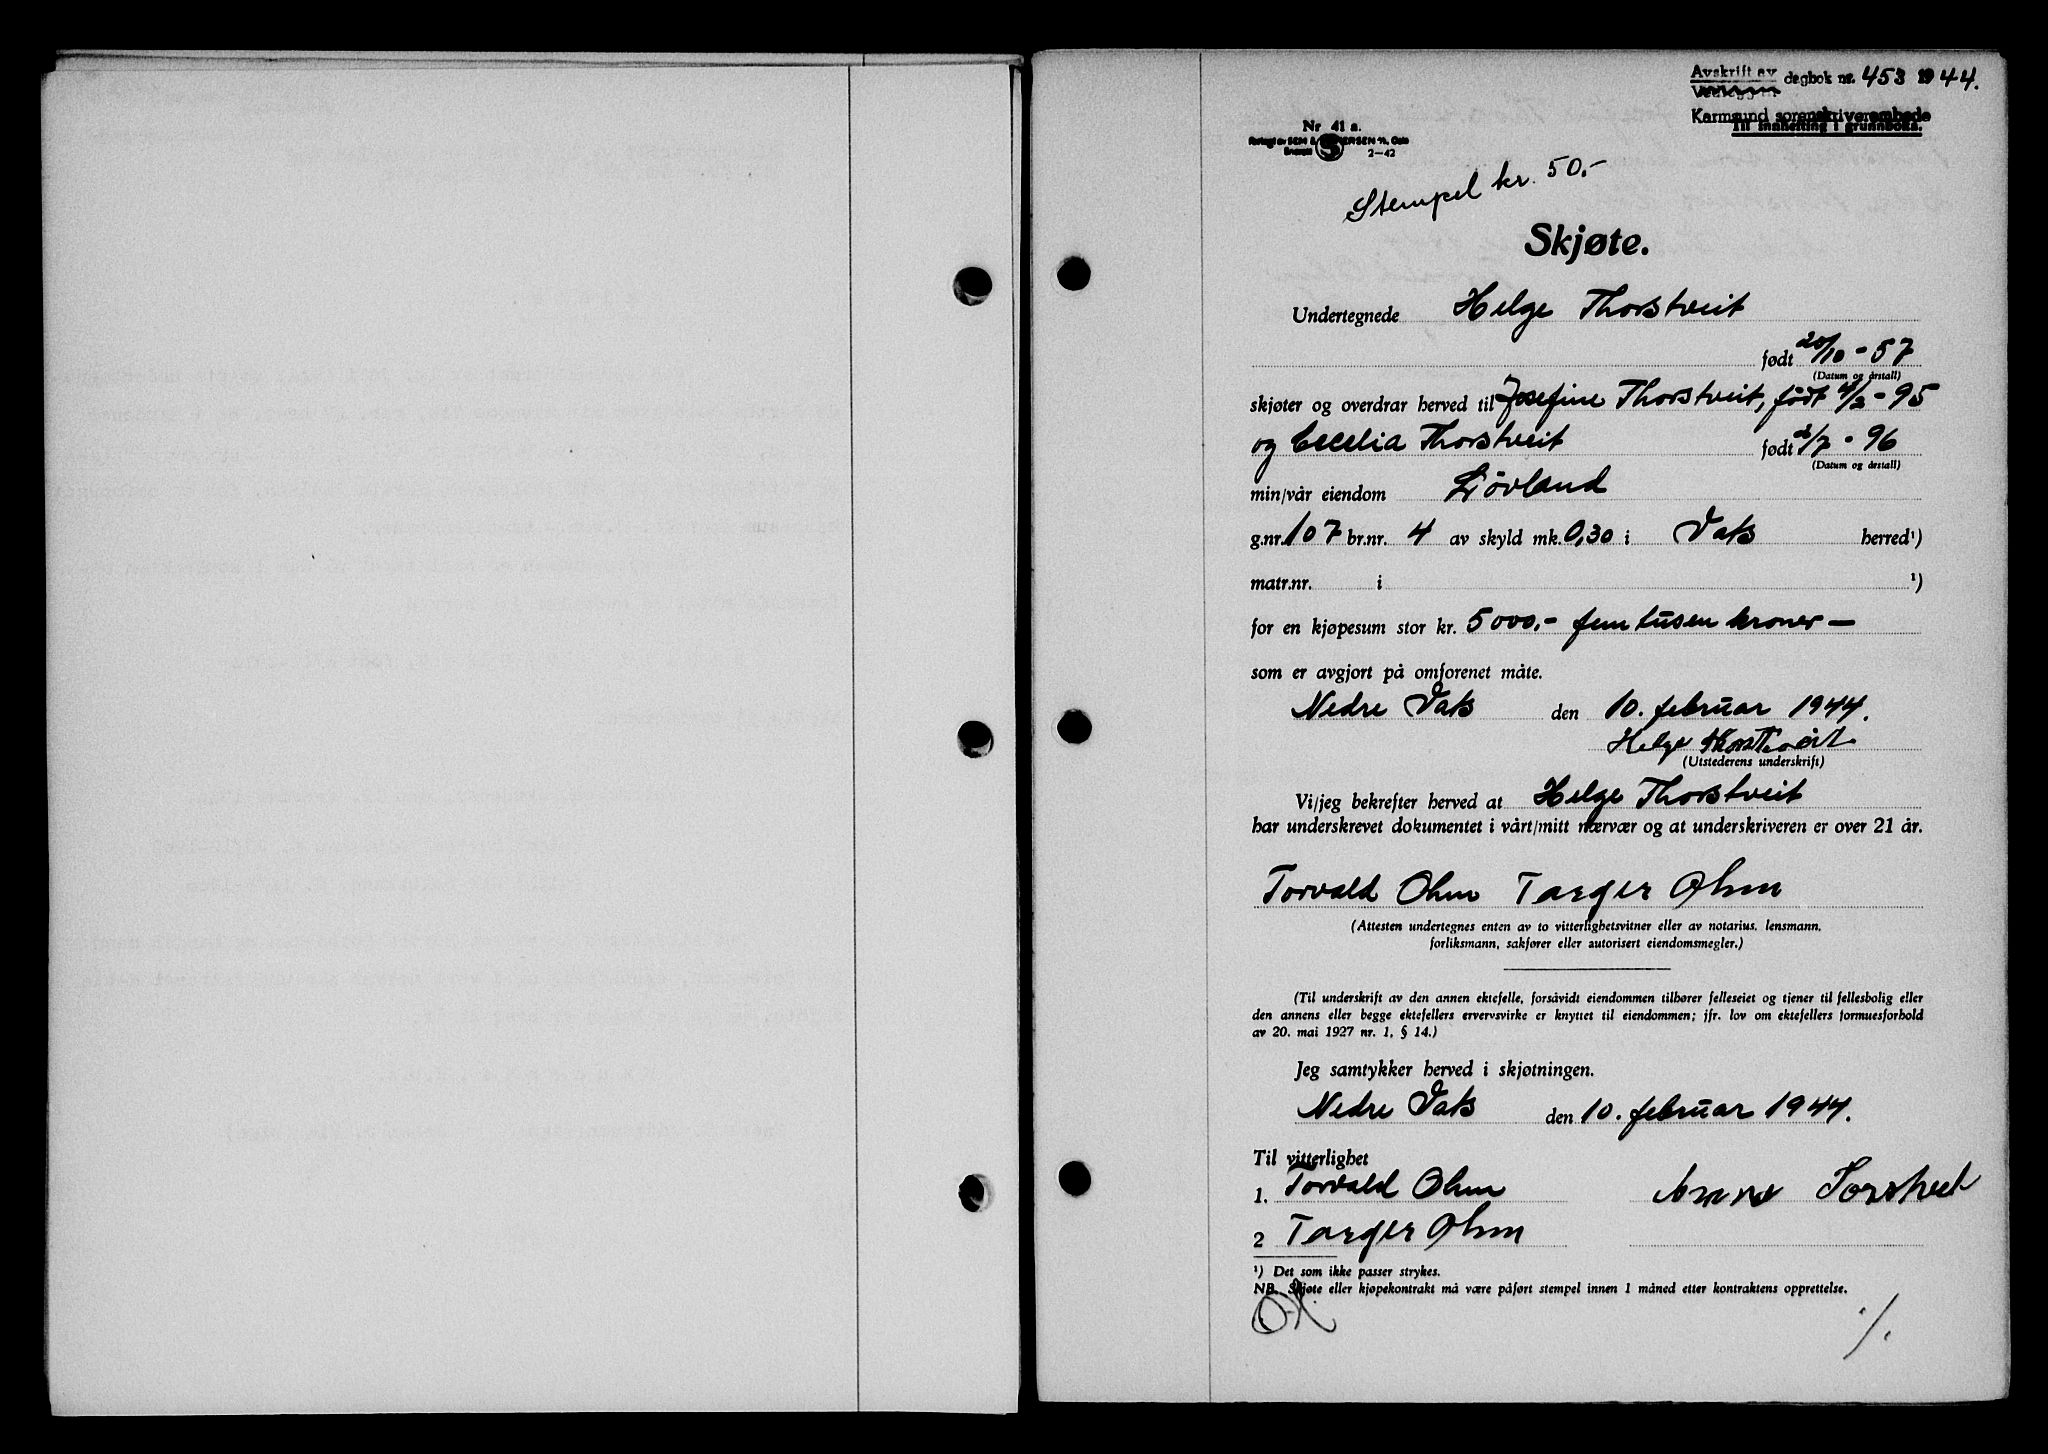 Avskrift av dagbok nr. 453 1944.
Vedlegg til
Karmsund sorenskriverembede
Til innhefting i grunnboka.
Nr 41 a.
2-42
Stempel kr. 50,-
Skjøte.
Undertegnede Helge Thorstveit
født 20/10 - 57
(Datum og årstall)
skjøter og overdrar herved til Josefine Thorstveit, født 4/2 - 95
og Cecelia Thorstveit født 2/7 - 96
(Datum og årstall)
min/vår eiendom Lövland
g.nr. 107 br.nr. 4 av skyld mk. 0,30 i Vats herred¹)
matr.nr. i ¹)
for en kjøpesum stor kr. 5000,- fem tusen kroner —
som er avgjort på omforenet måte.
Nedre Vats den 10. februar 1944.
Helge Thorstveit
(Utstederens underskrift)
Vi/jeg bekrefter herved at Helge Thorstveit
har underskrevet dokumentet i vårt/mitt nærvær og at underskriveren er over 21 år.
Torvald Ohm Targer Ohm
(Attesten undertegnes enten av to vitterlighetsvitner eller av notarius, lensmann,
forliksmann, sakfører eller autorisert eiendomsmegler.)
(Til underskrift av den annen ektefelle, forsåvidt eiendommen tilhører felleseiet og tjener til fellesbolig eller
den annens eller begge ektefellers ervervsvirke er knyttet til eiendommen; jfr. lov om ektefellers formuesforhold
av 20. mai 1927 nr. 1, § 14.)
Jeg samtykker herved i skjøtningen.
Nedre Vats den 10. februar 1944.
Til vitterlighet
1. Torvald Ohm Anna Torstveit
2 Targer Ohm
¹) Det som ikke passer strykes.
NB. Skjøte eller kjøpekontrakt må være påført stempel innen 1 måned etter kontraktens opprettelse.
./.